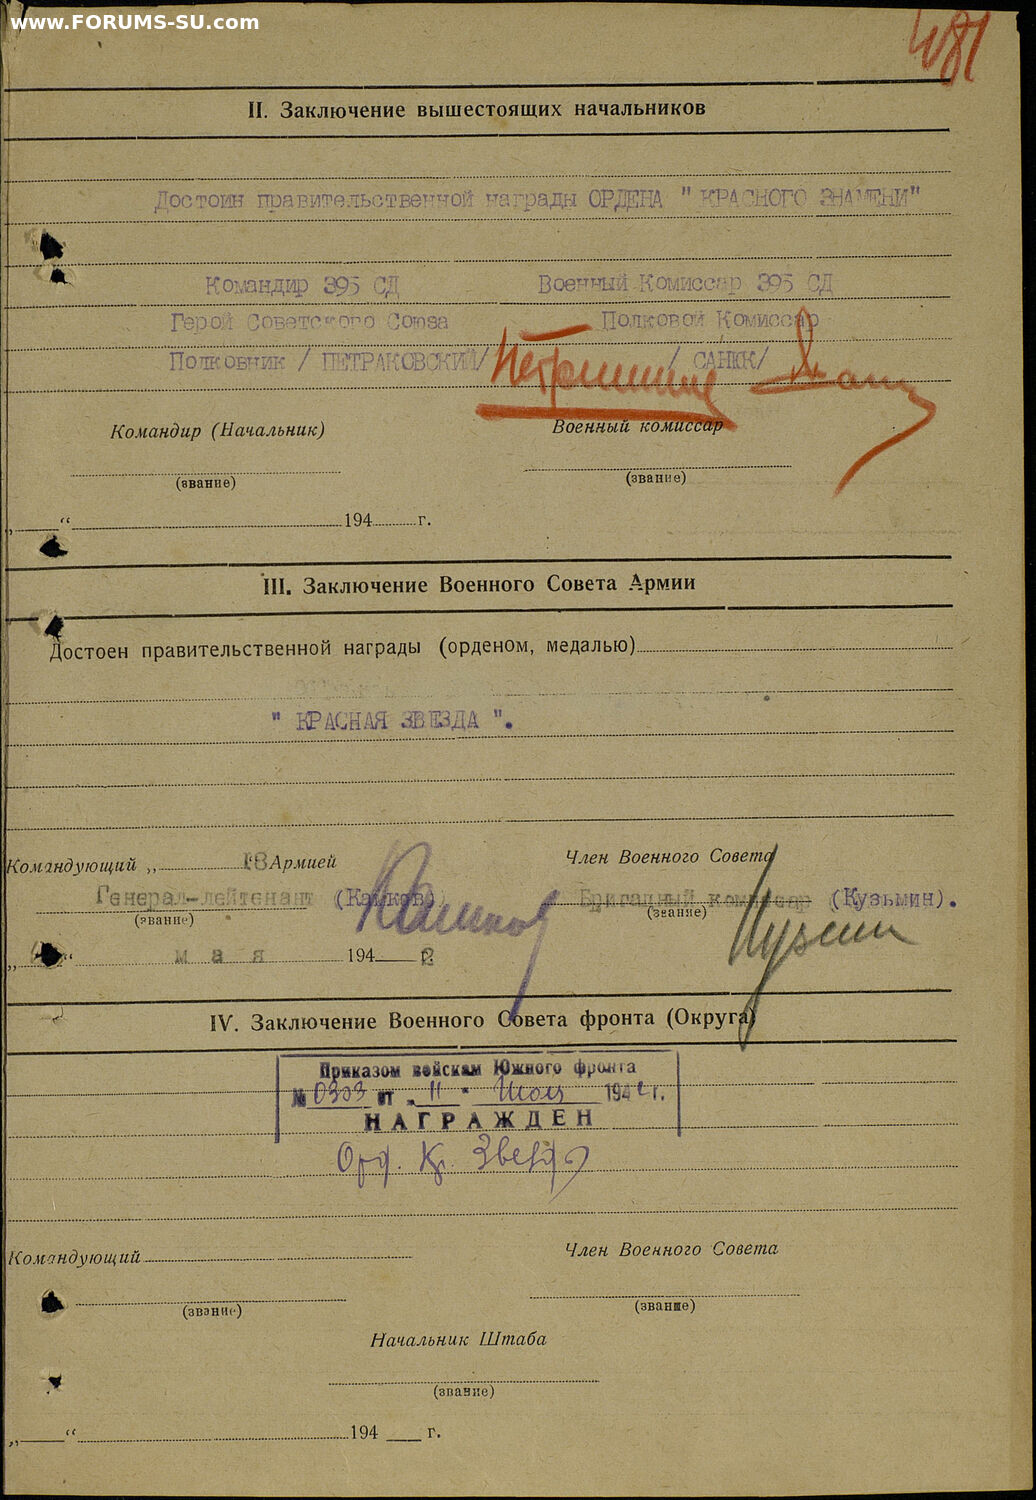 www.FORUMS-SU.com
481
II. Заключение вышестоящих начальников
Достоин правительственной награды ОРДЕНА " КРАСНОГО ЗНАМЕНИ"
Командир 395 СД Военный Комиссар 395 СД
Герой Советского Союза Полковой Комиссар
Полковник / ПЕТРАКОВСКИЙ/ / САННК/
Командир (Начальник) Военный комиссар
(звание) (звание)
„ “ 194 г.
III. Заключение Военного Совета Армии
Достоен правительственной награды (орденом, медалью)
" КРАСНАЯ ЗВЕЗДА ".
Командующий „ 18 Армией Член Военного Совета
Генерал-лейтенант (Камков) Бригадный комиссар (Кузьмин).
(звание) (звание)
Камков Кузьмин
„ “ м а я 194 2 г.
IV. Заключение Военного Совета фронта (Округа)
Приказом войскам Южного фронта
№ 0303 от „ 11 " Июля 1942 г.
НАГРАЖДЕН
Орд. Кр. Звезда
Командующий Член Военного Совета
(звание) (звание)
Начальник Штаба
(звание)
„ “ 194 г.